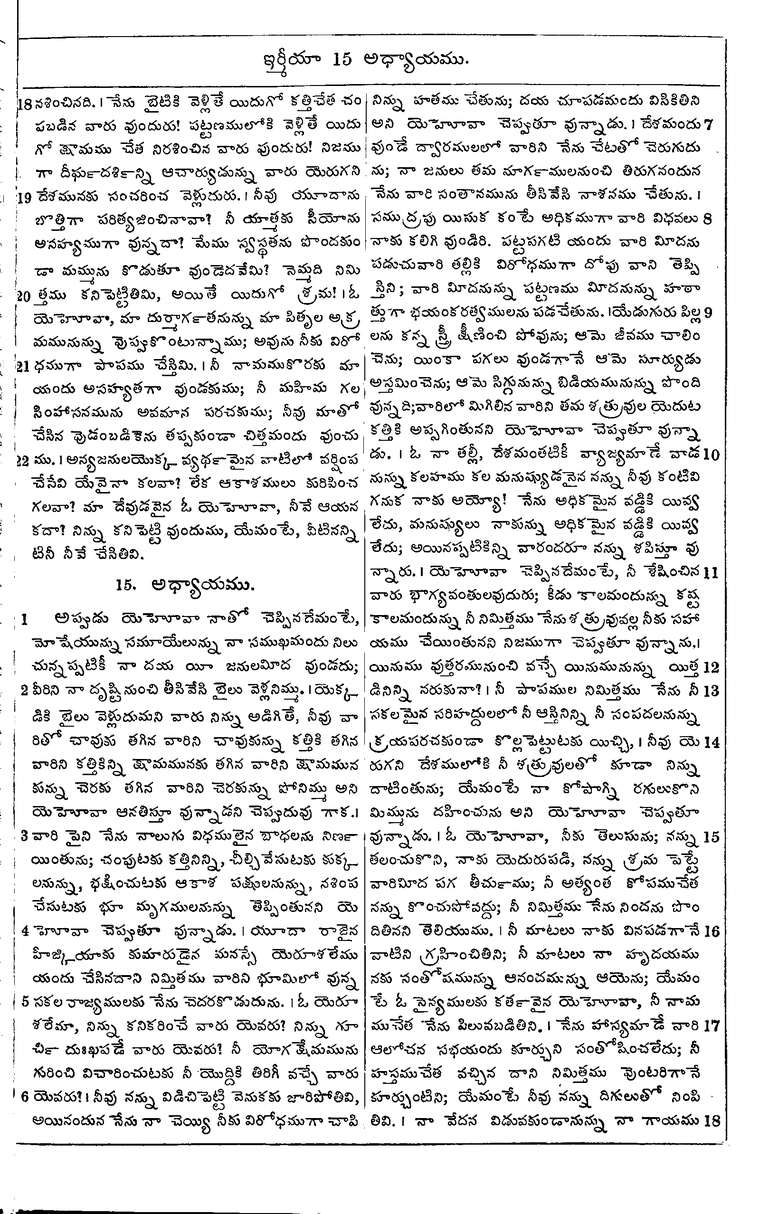 ఇర్మీయా 15 అధ్యాయము.
18 నశించినది. । నేను బైటికి వెళ్లితే యిదుగో కత్తిచేత చం
పబడిన వారు వుందురు! పట్టణములోకి వెళ్లితే యిదు
గో క్షామము చేత నిరశించిన వారు వుందురు! నిజము
గా దీర్ఘదర్శిన్ని ఆచార్యుడున్ను వారు యెరుగని
19 దేశమునకు సంచరించ వెళ్లుదురు. । నీవు యూదాను
బొత్తిగా పరిత్యజించినావా? నీ యాత్మకు సీయోను
అసహ్యముగా వున్నదా? మేము స్వస్థతను పొందకుం
డా మమ్మును కొడుతూ వుండెదవేమి? నెమ్మది నిమి
20 త్తము కనిపెట్టితిమి, అయితే యిదుగో శ్రమ! । ఓ
యెహోవా, మా దుర్మార్గతనున్ను మా పితృల అక్ర
మమునున్ను వొప్పుకొంటున్నాము; అవును నీకు విరో
21 ధముగా పాపము చేస్తిమి. । నీ నామముకొరకు మా
యందు అసహ్యతగా వుండకుము; నీ మహిమ గల
సింహాసనమును అవమాన పరచకుము; నీవు మాతో
చేసిన వొడంబడికెను తప్పకుండా చిత్తమందు వుంచు
22 ము. । అన్యజనులయొక్క వ్యర్థమైన వాటిలో వర్షింప
చేసేవి యేవైనా కలవా? లేక ఆకాశములు కురిపించ
గలవా? మా దేవుడవైన ఓ యెహోవా, నీవే ఆయన
కదా? నిన్ను కనిపెట్టి వుందుము, యేమంటే, వీటినన్ని
టినీ నీవే చేసితివి.
15. అధ్యాయము.
1 అప్పుడు యెహోవా నాతో చెప్పినదేమంటే,
మోషేయున్ను సమూయేలున్ను నా సముఖమందు నిలు
చున్నప్పటికీ నా దయ యీ జనులమీద వుండదు;
2 వీరిని నా దృష్టినుంచి తీసివేసి బైలు వెళ్లనిమ్ము. । యెక్క
డికి బైలు వెళ్లుదుమని వారు నిన్ను అడిగితే, నీవు వా
రితో చావుకు తగిన వారిని చావుకున్ను కత్తికి తగిన
వారిని కత్తికిన్ని క్షామమునకు తగిన వారిని క్షామమున
కున్ను చెరకు తగిన వారిని చెరకున్ను పోనిమ్ము అని
యెహోవా ఆనతిస్తూ వున్నాడని చెప్పుదువు గాక. ।
3 వారి పైని నేను నాలుగు విధములైన బాధలను నిర్ణ
యింతును; చంపుటకు కత్తినిన్ని, చీల్చివేసుటకు కుక్క
లనున్ను, భక్షించుటకు ఆకాశ పక్షులనున్ను, నశింప
చేసుటకు భూ మృగములనున్ను తెప్పింతునని యె
4 హోవా చెప్పుతూ వున్నాడు. । యూదా రాజైన
హిజ్కియాకు కుమారుడైన మనస్సే యెరూశలేము
యందు చేసినదాని నిమిత్తము వారిని భూమిలో వున్న
5 సకల రాజ్యములకు నేను చెదరకొడుదును. । ఓ యెరూ
శలేమా, నిన్ను కనికరించే వారు యెవరు? నిన్ను గూ
ర్చి దుఃఖపడే వారు యెవరు? నీ యోగక్షేమమును
గురించి విచారించుటకు నీ యొద్దికి తిరిగీ వచ్చే వారు
6 యెవరు? । నీవు నన్ను విడిచిపెట్టి వెనుకకు జారిపోతివి,
అయినందున నేను నా చెయ్యి నీకు విరోధముగా చాపి
నిన్ను హతము చేతును; దయ చూపడమందు విసికితిని
అని యెహోవా చెప్పుతూ వున్నాడు. । దేశమందు 7
వుండే ద్వారములలో వారిని నేను చేటతో చెరుగుదు
ను; నా జనులు తమ మార్గములనుంచి తిరుగనందున
నేను వారి సంతానమును తీసివేసి నాశనము చేతును. ।
సముద్రపు యిసుక కంటే అధికముగా వారి విధవలు 8
నాకు కలిగి వుండిరి. పట్టపగటి యందు వారి మీదను
పడుచువారి తల్లికి విరోధముగా దోపు వాని తెప్పి
స్తిని; వారి మీదనున్ను పట్టణము మీదనున్ను హఠా
త్తుగా భయంకరత్వములను పడచేతును. । యేడుగురు పిల్ల 9
లను కన్న స్త్రీ క్షీణించి పోవును; ఆమె జీవము చాలిం
చెను; యింకా పగలు వుండగానే ఆమె సూర్యుడు
అస్తమించెను; ఆమె సిగ్గునున్ను బిడియమునున్ను పొంది
వున్నది; వారిలో మిగిలిన వారిని తమ శత్రువుల యెదుట
కత్తికి అప్పగింతునని యెహోవా చెప్పుతూ వున్నా
డు. । ఓ నా తల్లీ, దేశమంతటికీ వ్యాజ్యమాడే వాడ 10
నున్ను కలహము కల మనుష్యుడనైన నన్ను నీవు కంటివి
గనుక నాకు అయ్యో! నేను అధికమైన వడ్డికి యివ్వ
లేదు, మనుష్యులు నాకున్ను అధికమైన వడ్డికి యివ్వ
లేదు; అయినప్పటికిన్ని వారందరూ నన్ను శపిస్తూ వు
న్నారు. । యెహోవా చెప్పినదేమంటే, నీ శేషించిన 11
వారు భాగ్యవంతులవుదురు; కీడు కాలమందున్ను కష్ట
కాలమందున్ను నీ నిమిత్తము నేను శత్రువువల్ల నీకు సహా
యము చేయింతునని నిజముగా చెప్పుతూ వున్నాను. ।
యినుము వుత్తరమునుంచి వచ్చే యినుమునున్ను యిత్త 12
డినిన్ని నరుకునా? । నీ పాపముల నిమిత్తము నేను నీ 13
సకలమైన సరిహద్దులలో నీ ఆస్తినిన్ని నీ సంపదలనున్ను
క్రయపరచకుండా కొల్లపెట్టుటకు యిచ్చి, । నీవు యె 14
రుగని దేశములోకి నీ శత్రువులతో కూడా నిన్ను
దాటింతును; యేమంటే నా కోపాగ్ని రగులుకొని
మిమ్మును దహించును అని యెహోవా చెప్పుతూ
వున్నాడు. । ఓ యెహోవా, నీకు తెలుసును; నన్ను 15
తలంచుకొని, నాకు యెదురుపడి, నన్ను శ్రమ పెట్టే
వారిమీద పగ తీర్చుము; నీ అత్యంత కోపముచేత
నన్ను కొంచుపోవద్దు; నీ నిమిత్తము నేను నిందను పొం
దితినని తెలియుము. । నీ మాటలు నాకు వినపడగానే 16
వాటిని గ్రహించితిని; నీ మాటలు నా హృదయము
నకు సంతోషమున్ను ఆనందమున్ను ఆయెను; యేమం
టే ఓ సైన్యములకు కర్తవైన యెహోవా, నీ నామ
ముచేత నేను పిలువబడితిని. । నేను హాస్యమాడే వారి 17
ఆలోచన సభయందు కూర్చుని సంతోషించలేదు; నీ
హస్తముచేత వచ్చిన దాని నిమిత్తము వొంటరిగానే
కూర్చుంటిని; యేమంటే నీవు నన్ను దిగులుతో నింపి
తివి. । నా వేదన విడువకుండానున్ను నా గాయము 18